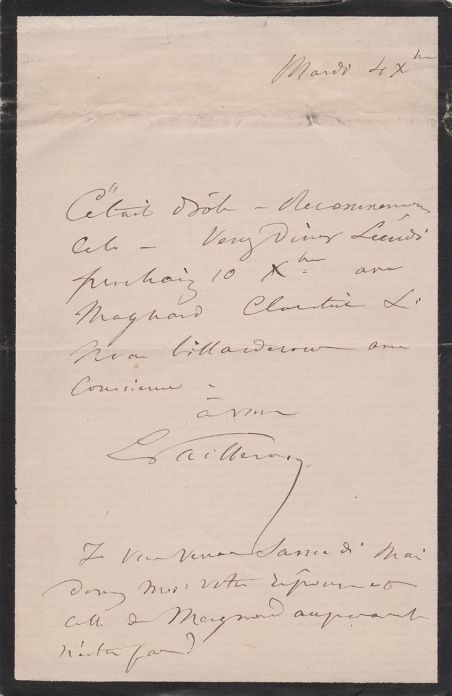 Mardi 4 Xbre
C'était drôle – Recommencons
cela – Venez Diner Lundi
prochain 10 Xbre avec
Magnard Claretie &
avec
Conscience –
à vous
E Pailleron
Je vous verrai Samedi Mais
donnez moi votre réponse et
celle de Magnard auparavant
n'est ce pas?